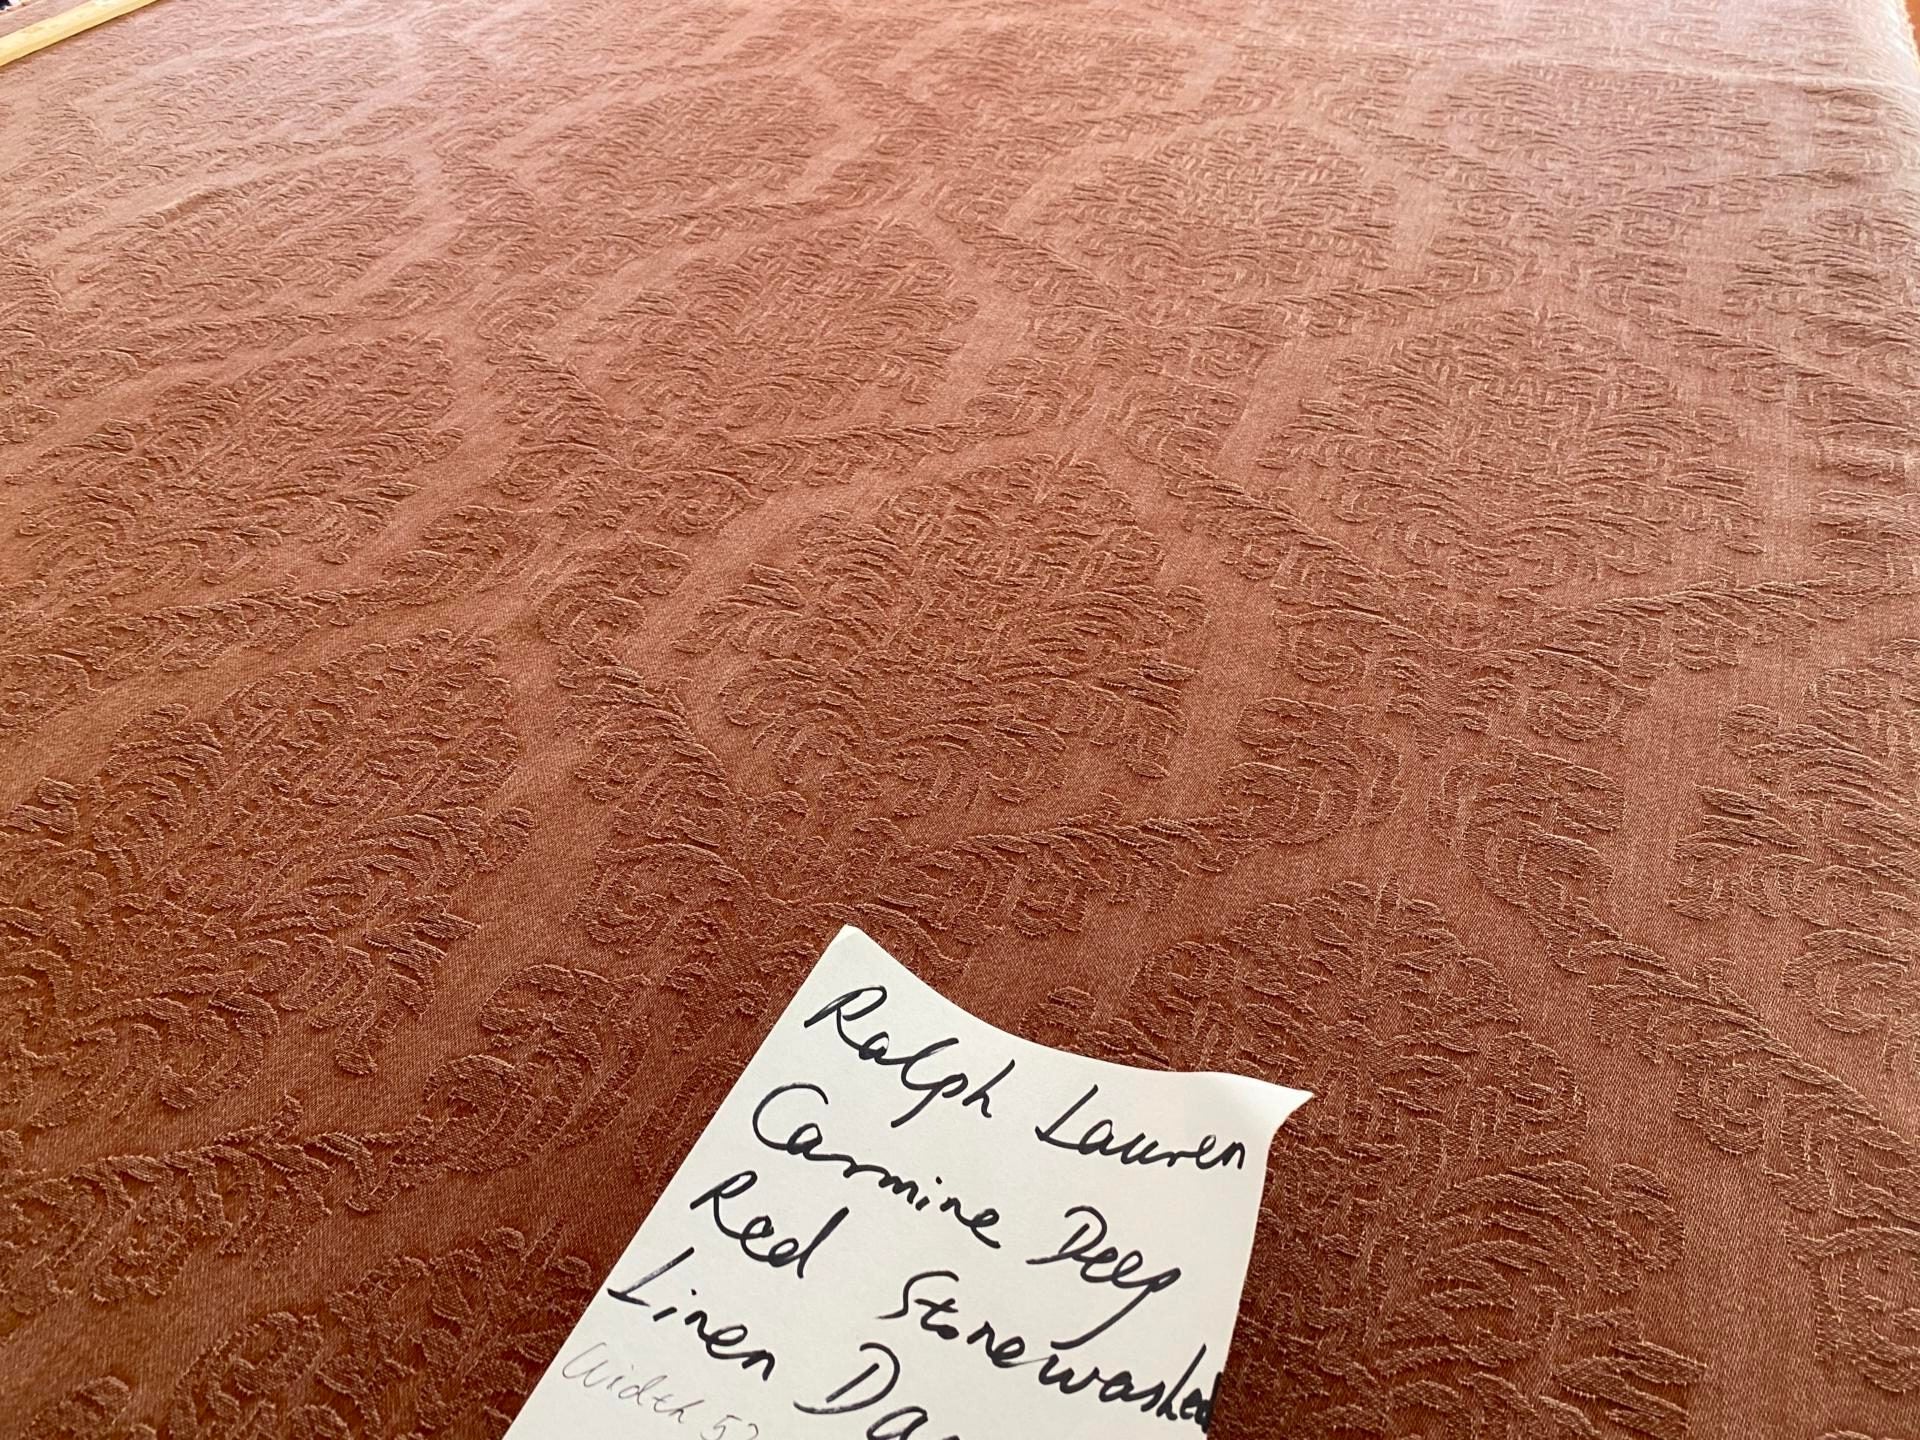 Ralph Lauren
Carmine Deep
Red Stonewashed
Linen Da
Width 52